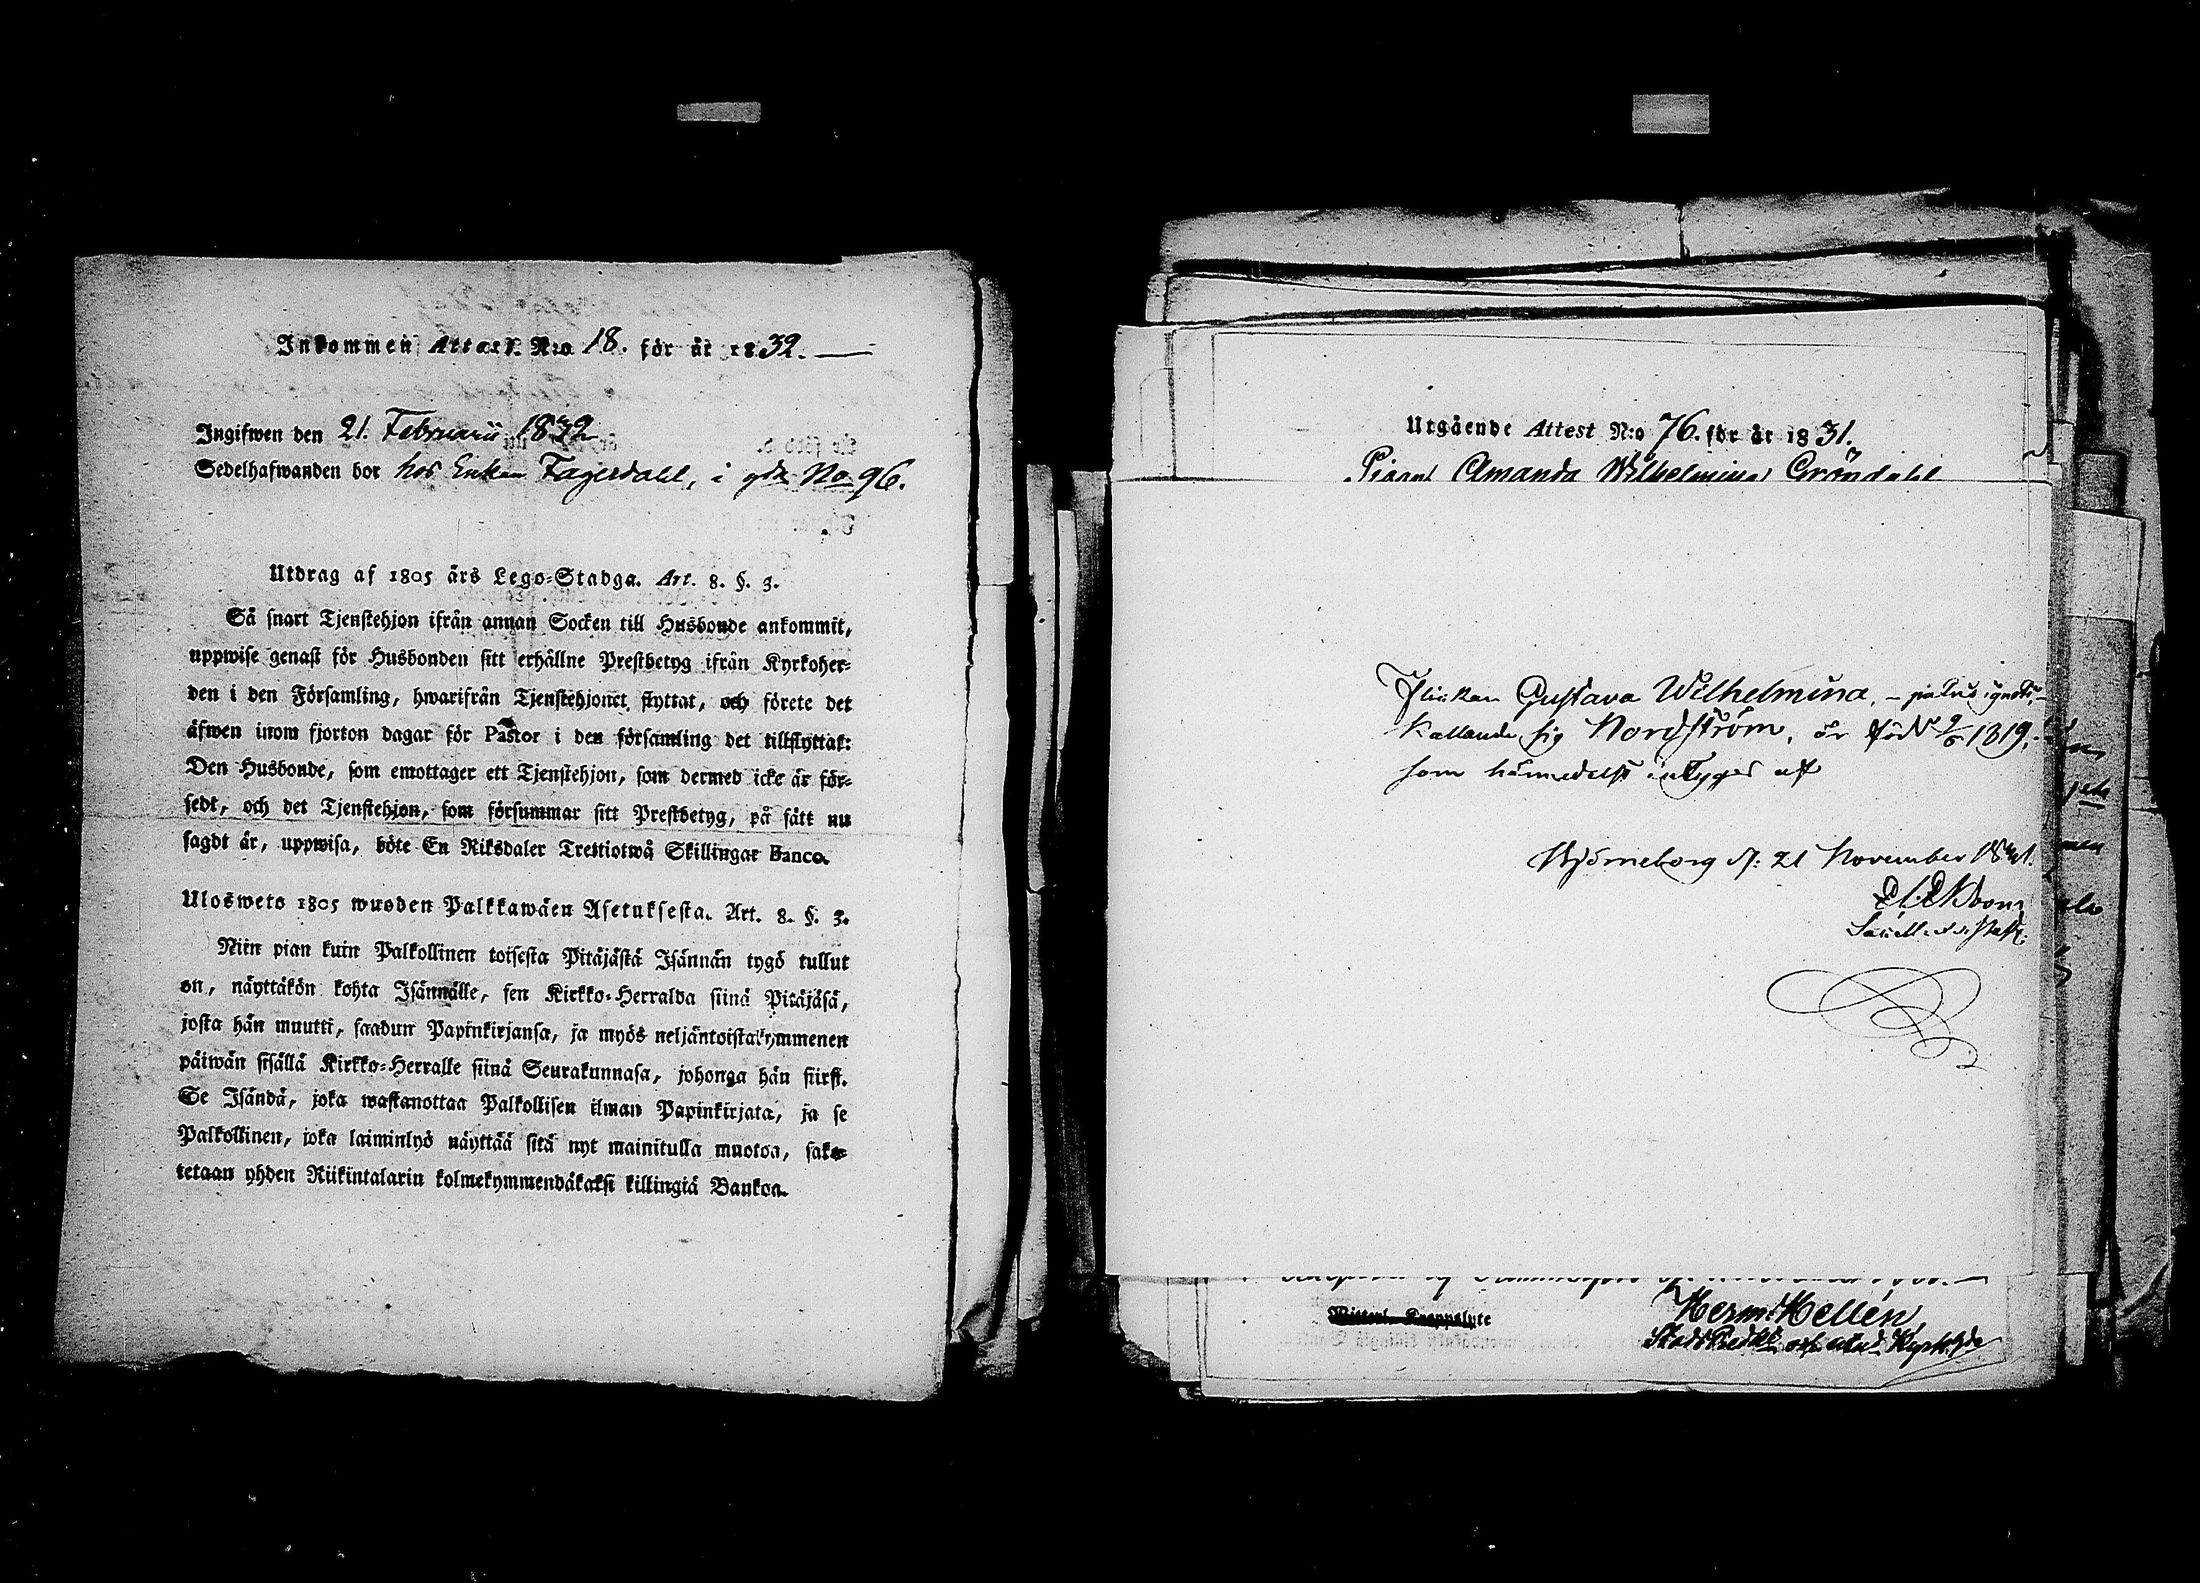 Inkommen Attest N:o 18. för år 1832.
Ingifwen den 21. Februarii 1832
Sedelhafwanden bor hos Enkan Fagerdahl, i gdn No 96.
Utdrag af 1805 års Lego-Stadga. Art. 8. §. 3.
Så snart Tjenstehjon ifrån annan Socken till Husbonde ankommit,
uppwise genast för Husbonden sitt erhållne Prestbetyg ifrån Kyrkoher-
den i den Församling, hwarifrån Tjenstehjonet flyttat, och förete det
äfwen inom fjorton dagar för Pastor i den församling det tillflyttat:
Den Husbonde, som emottager ett Tjenstehjon, som dermed icke är för-
sedt, och det Tjenstehjon, som försummar sitt Prestbetyg, på sätt nu
sagdt är, uppwisa, böte En Riksdaler Trettiotwå Skillingar Banco.
Ulosweto 1805 wuoden Palkkawäen Asetuksesta. Art. 8. §. 3.
Niin pian kuin Palkollinen toisesta Pitäjästä Isännän tygö tullut
on, näyttäkön kohta Isännälle, sen Kirkko-Herralda siinä Pitäjäsä,
josta hän muutti, saadun Papinkirjansa, ja myös neljäntoistakymmenen
päiwän sisällä Kirkko-Herralle siinä Seurakunnasa, johonga hän siirst.
Se Isändä, joka wastanottaa Palkollisen ilman Papinkirjata, ja se
Palkollinen, joka laiminlyö näyttää sitä nyt mainitulla muotoa, sako-
tetaan yhden Riikintalarin kolmekymmendäkaksi killingiä Bankoa.
Utgående Attest N:o 76. för år 1831.
Pigan Amanda Wilhelmina Gröndahl
Flickan Gustava Wilhelmina,
kallande sig Nordström, är född 2/6 1819;
som härmedelst intygas af
Björneborg d. 21 November 1841.
Herm: Hellén,